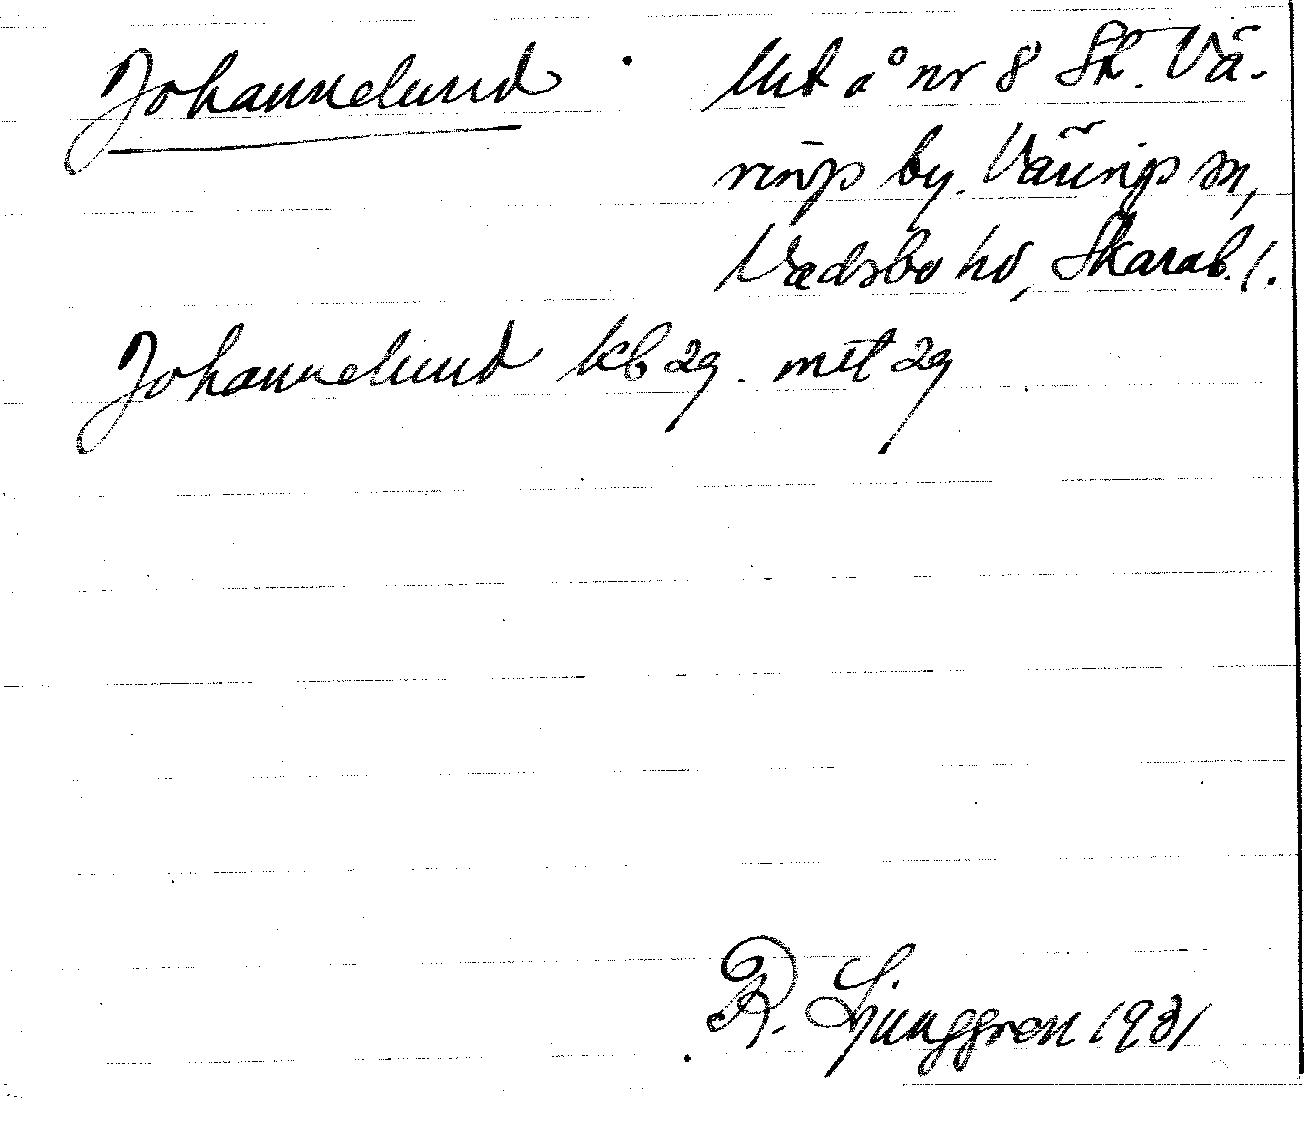 Johannelund. Utt å nr 8 St. Vä-
rings by. Värings sn,
Vadsbo hd, Skarab. l.
Johannelund kb 29. mtl 29
R. Ljunggren 1931